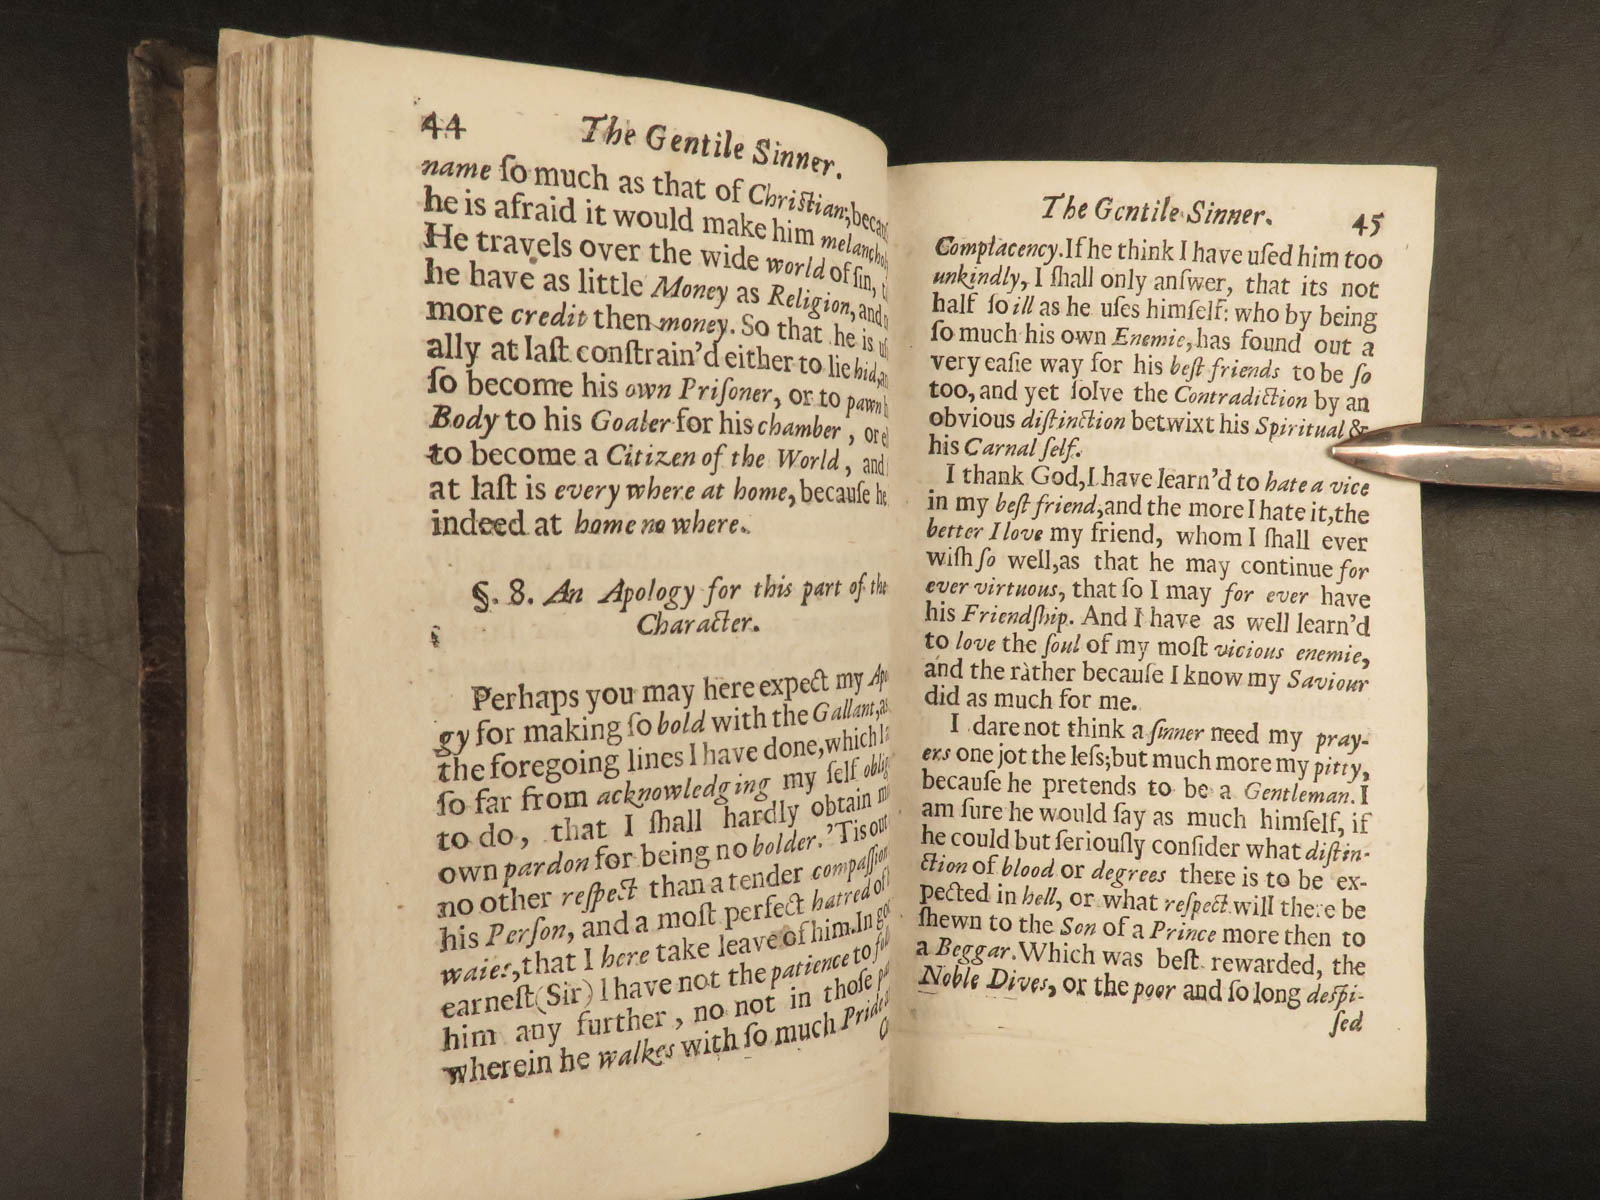 44
The Gentile Sinner.
name ſo much as that of Chriſtian;
he is afraid it would make him
He travels over the wide world of ſin,
he have as little Money as Religion, and
more credit then money. So that he is
ally at laſt conſtrain'd either to lie hid,
ſo become his own Priſoner, or to pawn
Body to his Goaler for his chamber, or
to become a Citizen of the World, and
at laſt is every where at home, becauſe he
indeed at home no where.
§. 8. An Apology for this part of the
Character.
Perhaps you may here expect my
gy for making ſo bold with the Gallant,
the foregoing lines I have done, which
ſo far from acknowledging my ſelf
to do, that I ſhall hardly obtain
own pardon for being no bolder. 'Tis out
no other reſpect than a tender
his Perſon, and a moſt perfect hatred of
waies, that I here take leave of him. In
earneſt (Sir) I have not the patience to
him any further, no not in thoſe
wherein he walkes with ſo much Pride
The Gentile Sinner.
45
Complacency. If he think I have uſed him too
unkindly, I ſhall only anſwer, that its not
half ſo ill as he uſes himſelf: who by being
ſo much his own Enemie, has found out a
very eaſie way for his beſt friends to be ſo
too, and yet ſolve the Contradiction by an
obvious diſtinction betwixt his Spiritual &
his Carnal ſelf.
I thank God, I have learn'd to hate a vice
in my beſt friend, and the more I hate it, the
better I love my friend, whom I ſhall ever
wiſh ſo well, as that he may continue for
ever virtuous, that ſo I may for ever have
his Friendſhip. And I have as well learn'd
to love the ſoul of my moſt vicious enemie,
and the rather becauſe I know my Saviour
did as much for me.
I dare not think a ſinner need my pray-
ers one jot the leſs; but much more my pitty,
becauſe he pretends to be a Gentleman. I
am ſure he would ſay as much himſelf, if
he could but ſeriouſly conſider what diſtin-
ction of blood or degrees there is to be ex-
pected in hell, or what reſpect will there be
ſhewn to the Son of a Prince more then to
a Beggar. Which was beſt rewarded, the
Noble Dives, or the poor and ſo long deſpi-
ſed